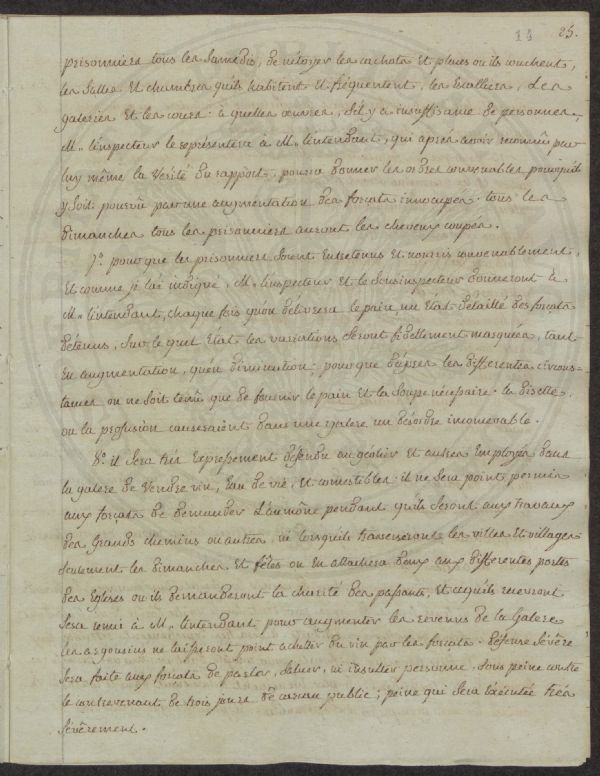 14 25.
prisonniers tous les Samedis, de netoyer les cachots Et places ou ils couchent,
les Salles Et chambres qu'ils habitent Et fréquentent, les Escalliers, Les
galeries Et les cours: à quelles œuvres, s'il y a insuffisance de personnes,
M.r l'inspecteur le représentera à M.r l'intendant, qui après avoir reconnu par
luy même la Verité du rapport, pourra donner les ordres convenables pour qu'il
y soit pourvû par une augmentation des forçats innocupés. tous les
dimanches tous les prisonniers auront les cheveux coupés.
7.o pour que les prisonniers soient Entretenus Et nourris convenablement,
Et comme je l'ai indiqué, M.r l'inspecteur Et le Sousinspecteur donneront à
M.r l'intendant, chaque fois qu'on délivrera le pain, un Etat détaillé des forçats
détenus, Sur le quel Etat les variations Seront fidellement marquées, tant
En augmentation, qu'en diminution: pour que d'après les differentes circons=
tances on ne soit tenû que de fournir le pain Et la Soupe nécessaire. la disette,
ou la profusion causeraient dans une galere un désordre inconcevable.
8.o il Sera très Expressement défendu au géolier Et autres Employés dans
la galere de Vendre vin, Eau de vie, Et comestibles: il ne Sera point permis
aux forçats de demander L'aumône pendant qu'ils Seront aux travaux
des Grands chemins ou autres, ni lorsqu'ils traverseront les villes Et villages
Seulement les dimanches Et fêtes on En attachera deux aux differentes portes
des Eglises ou ils demanderont la charité des passants, Et ce qu'ils recevront
Sera remis à M.r l'intendant pour augmenter les revenus de la Galere
les argousins ne laisseront point acheter du vin par les forçats. défense Sévère
Sera faite aux forçats de parler, Saluer, ni insulter personne. Sous peine contre
le contrevenant de trois jours de carcan public; peine qui Sera Exécutée très
Sévèrement.